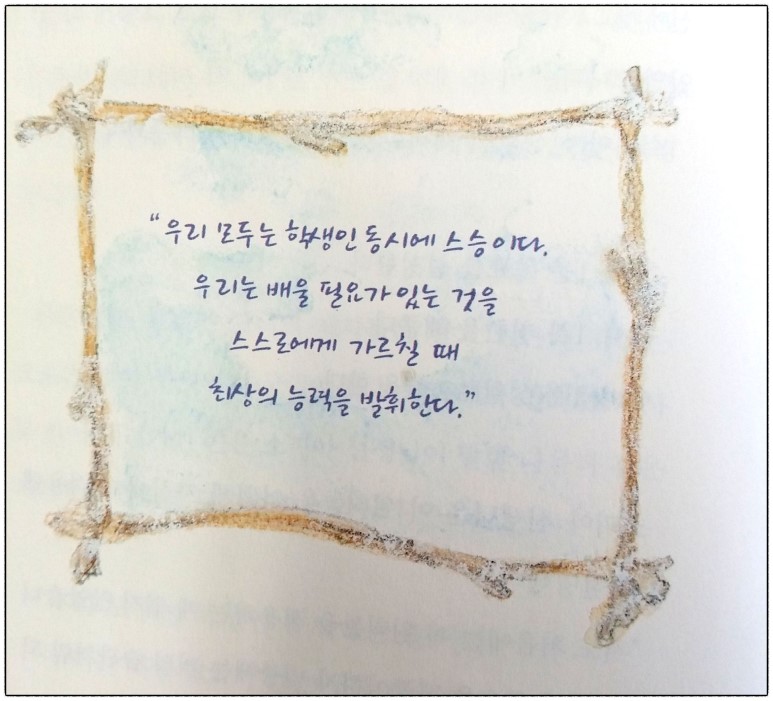 “우리 모두는 학생인 동시에 스승이다.
우리는 배울 필요가 있는 것을
스스로에게 가르칠 때
최상의 능력을 발휘한다.”